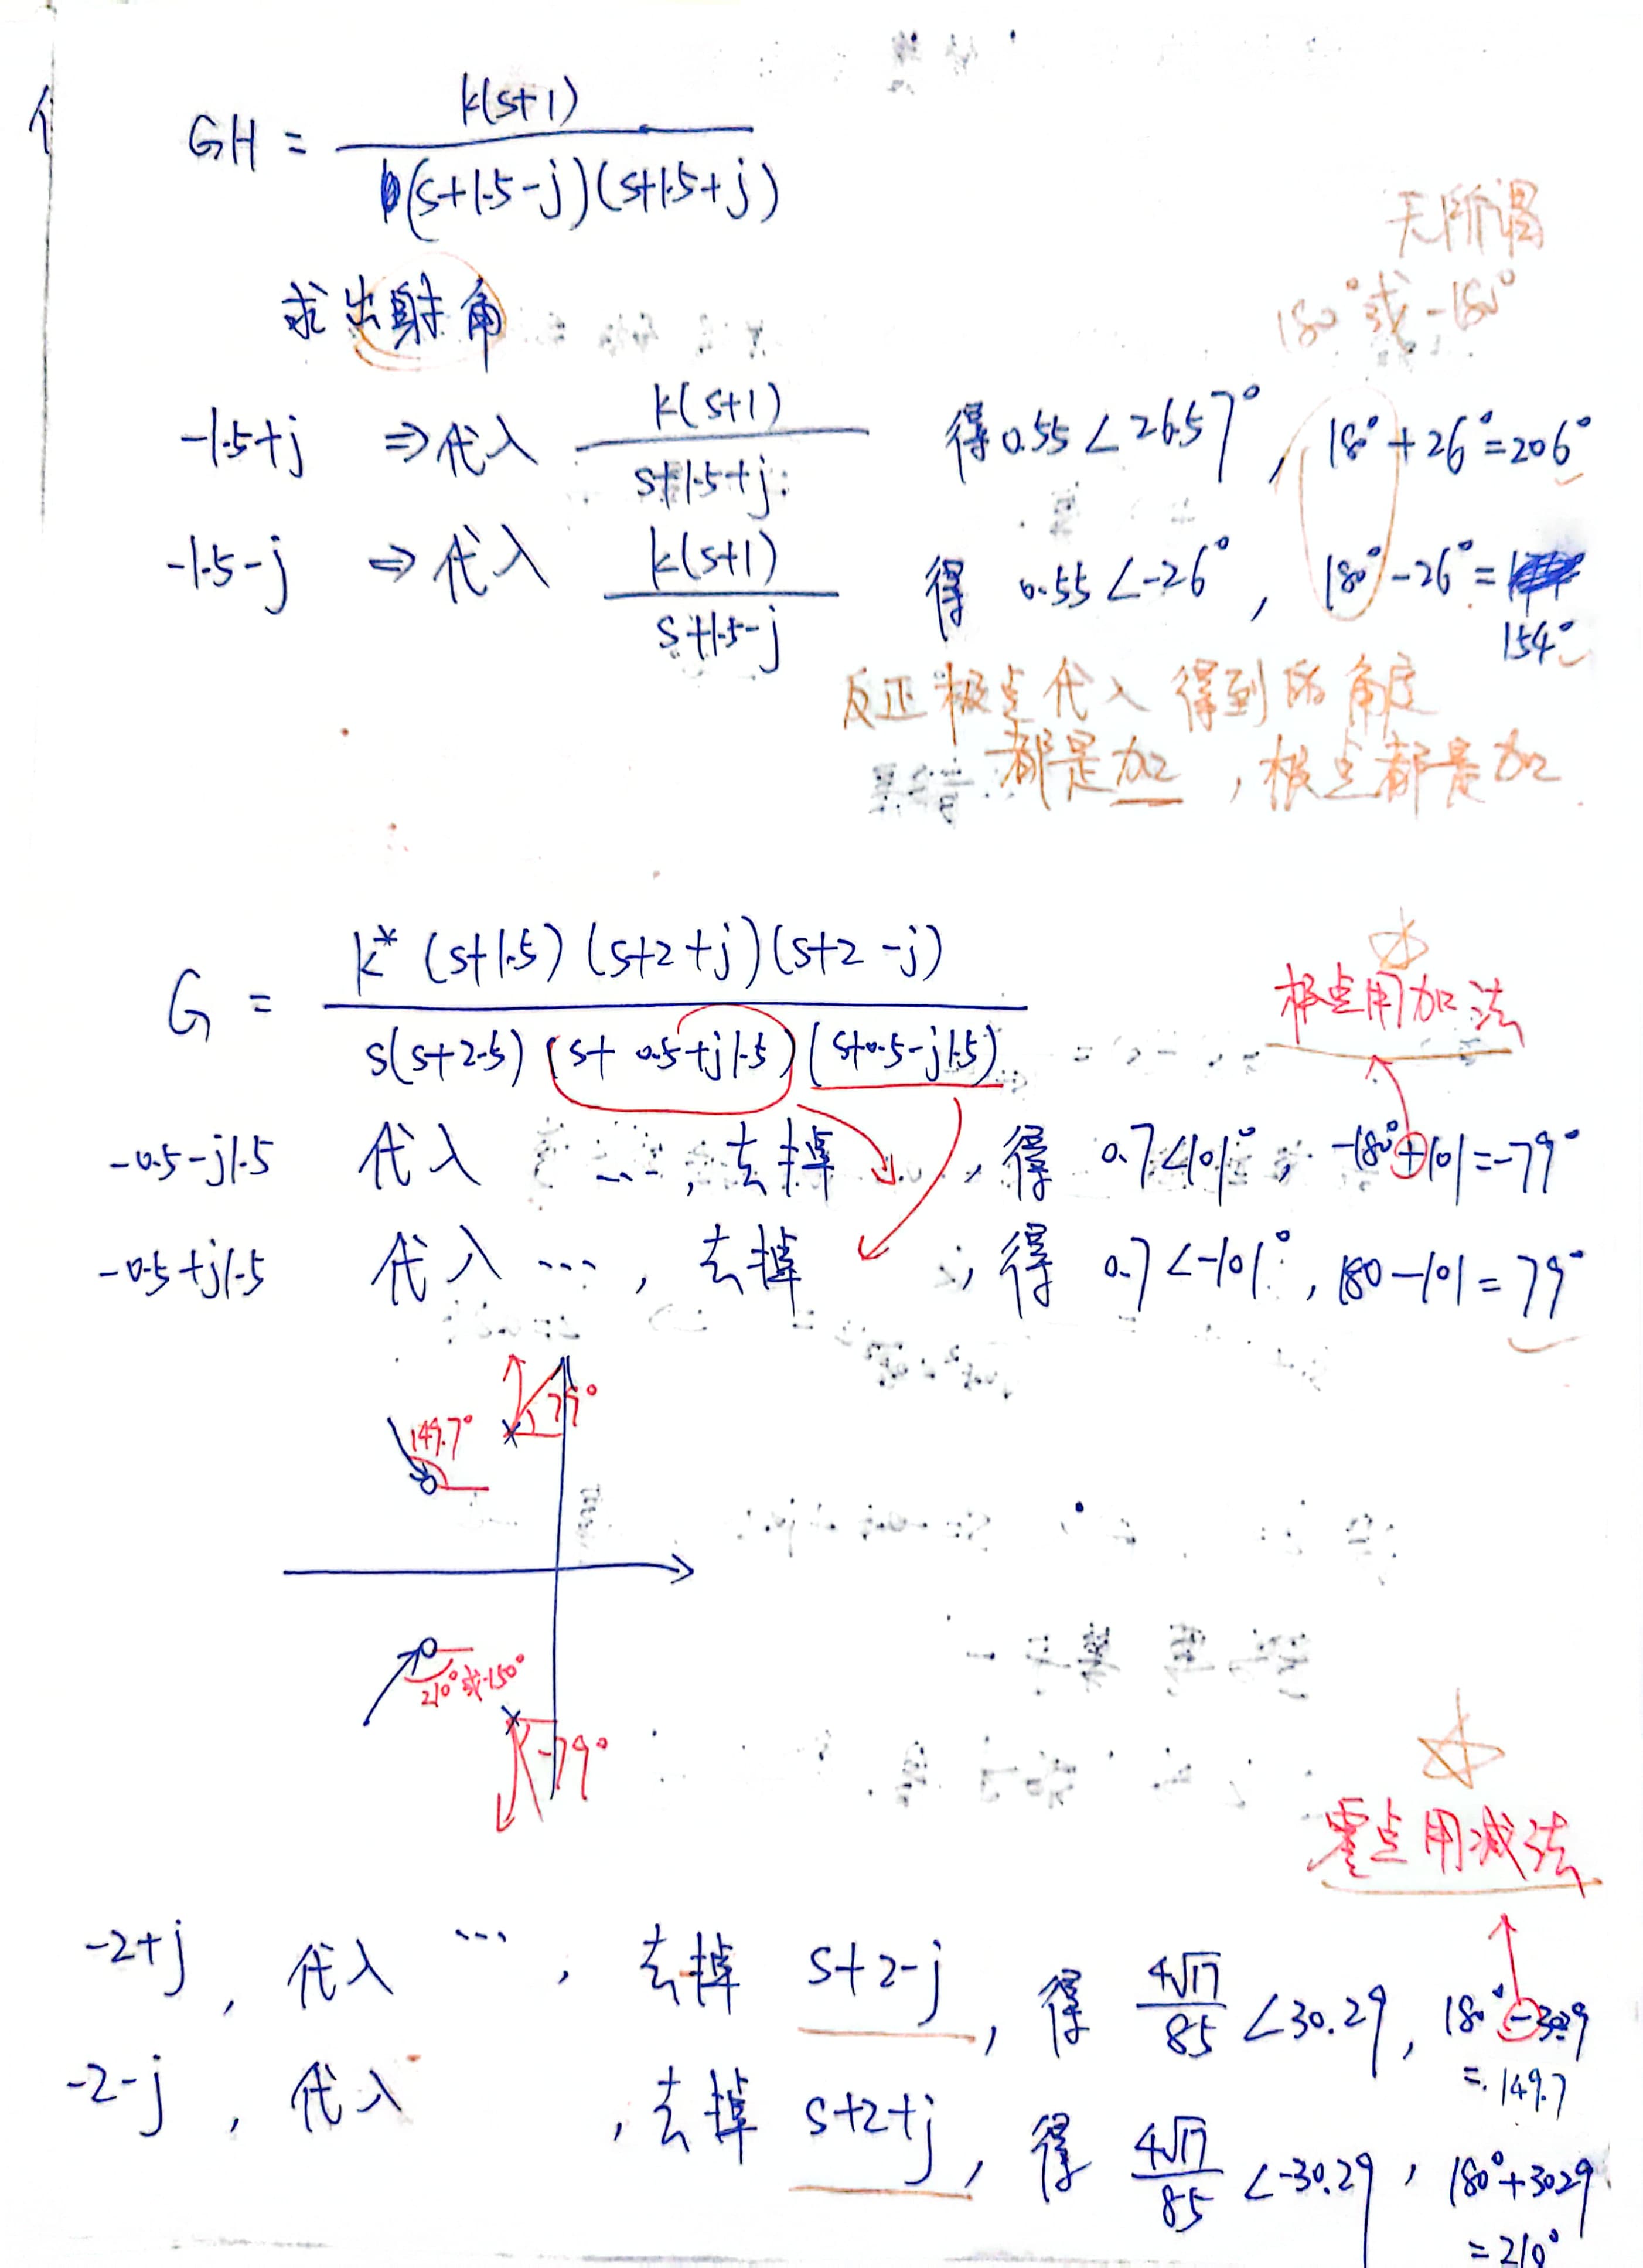 GH = k(s+1) / (s+1.5-j)(s+1.5+j)
无所谓
180°或-180°
求出射角
-1.5+j ⇒代入 k(s+1) / s+1.5+j 得0.55∠26.57°, 180°+26°=206°
-1.5-j ⇒代入 k(s+1) / s+1.5-j 得 0.55∠-26°, 180°-26°=
154°
反正极点代入得到的角度
都是加,极点都是加
G = k* (s+1.5)(s+2+j)(s+2-j) / s(s+2.5)(s+0.5+j1.5)(s+0.5-j1.5)
极点用加法
-0.5-j1.5 代入 ..., 去掉 , 得 0.7∠101°, -180°+101=-79°
-0.5+j1.5 代入 ..., 去掉 , 得 0.7∠-101°, 180-101=79°
79°
149.7°
210°或-150°
-79°
零点用减法
-2+j, 代入 ..., 去掉 s+2-j, 得 4√17/85 ∠30.29, 180°-30.29
=149.7
-2-j, 代入 , 去掉 s+2+j, 得 4√17/85 ∠-30.29, 180°+30.29
=210°